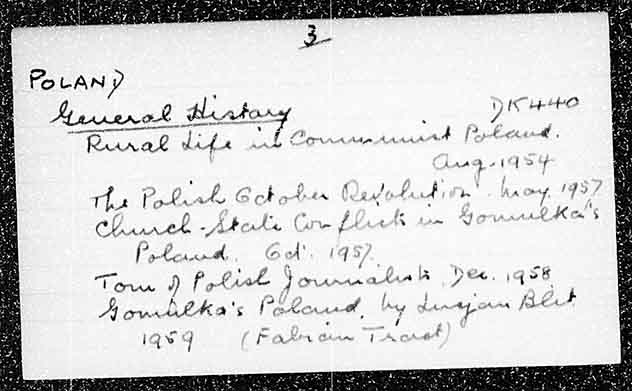 3
POLAND
General History DK440
Rural Life in Communist Poland.
Aug. 1954
The Polish October Revolution. May. 1957
Church-State Conflicts in Gomulka's
Poland. Oct. 1957.
Tour of Polish Journalists, Dec. 1958
Gomulka's Poland, by Lucjan Blit
1959 (Fabian Tract)